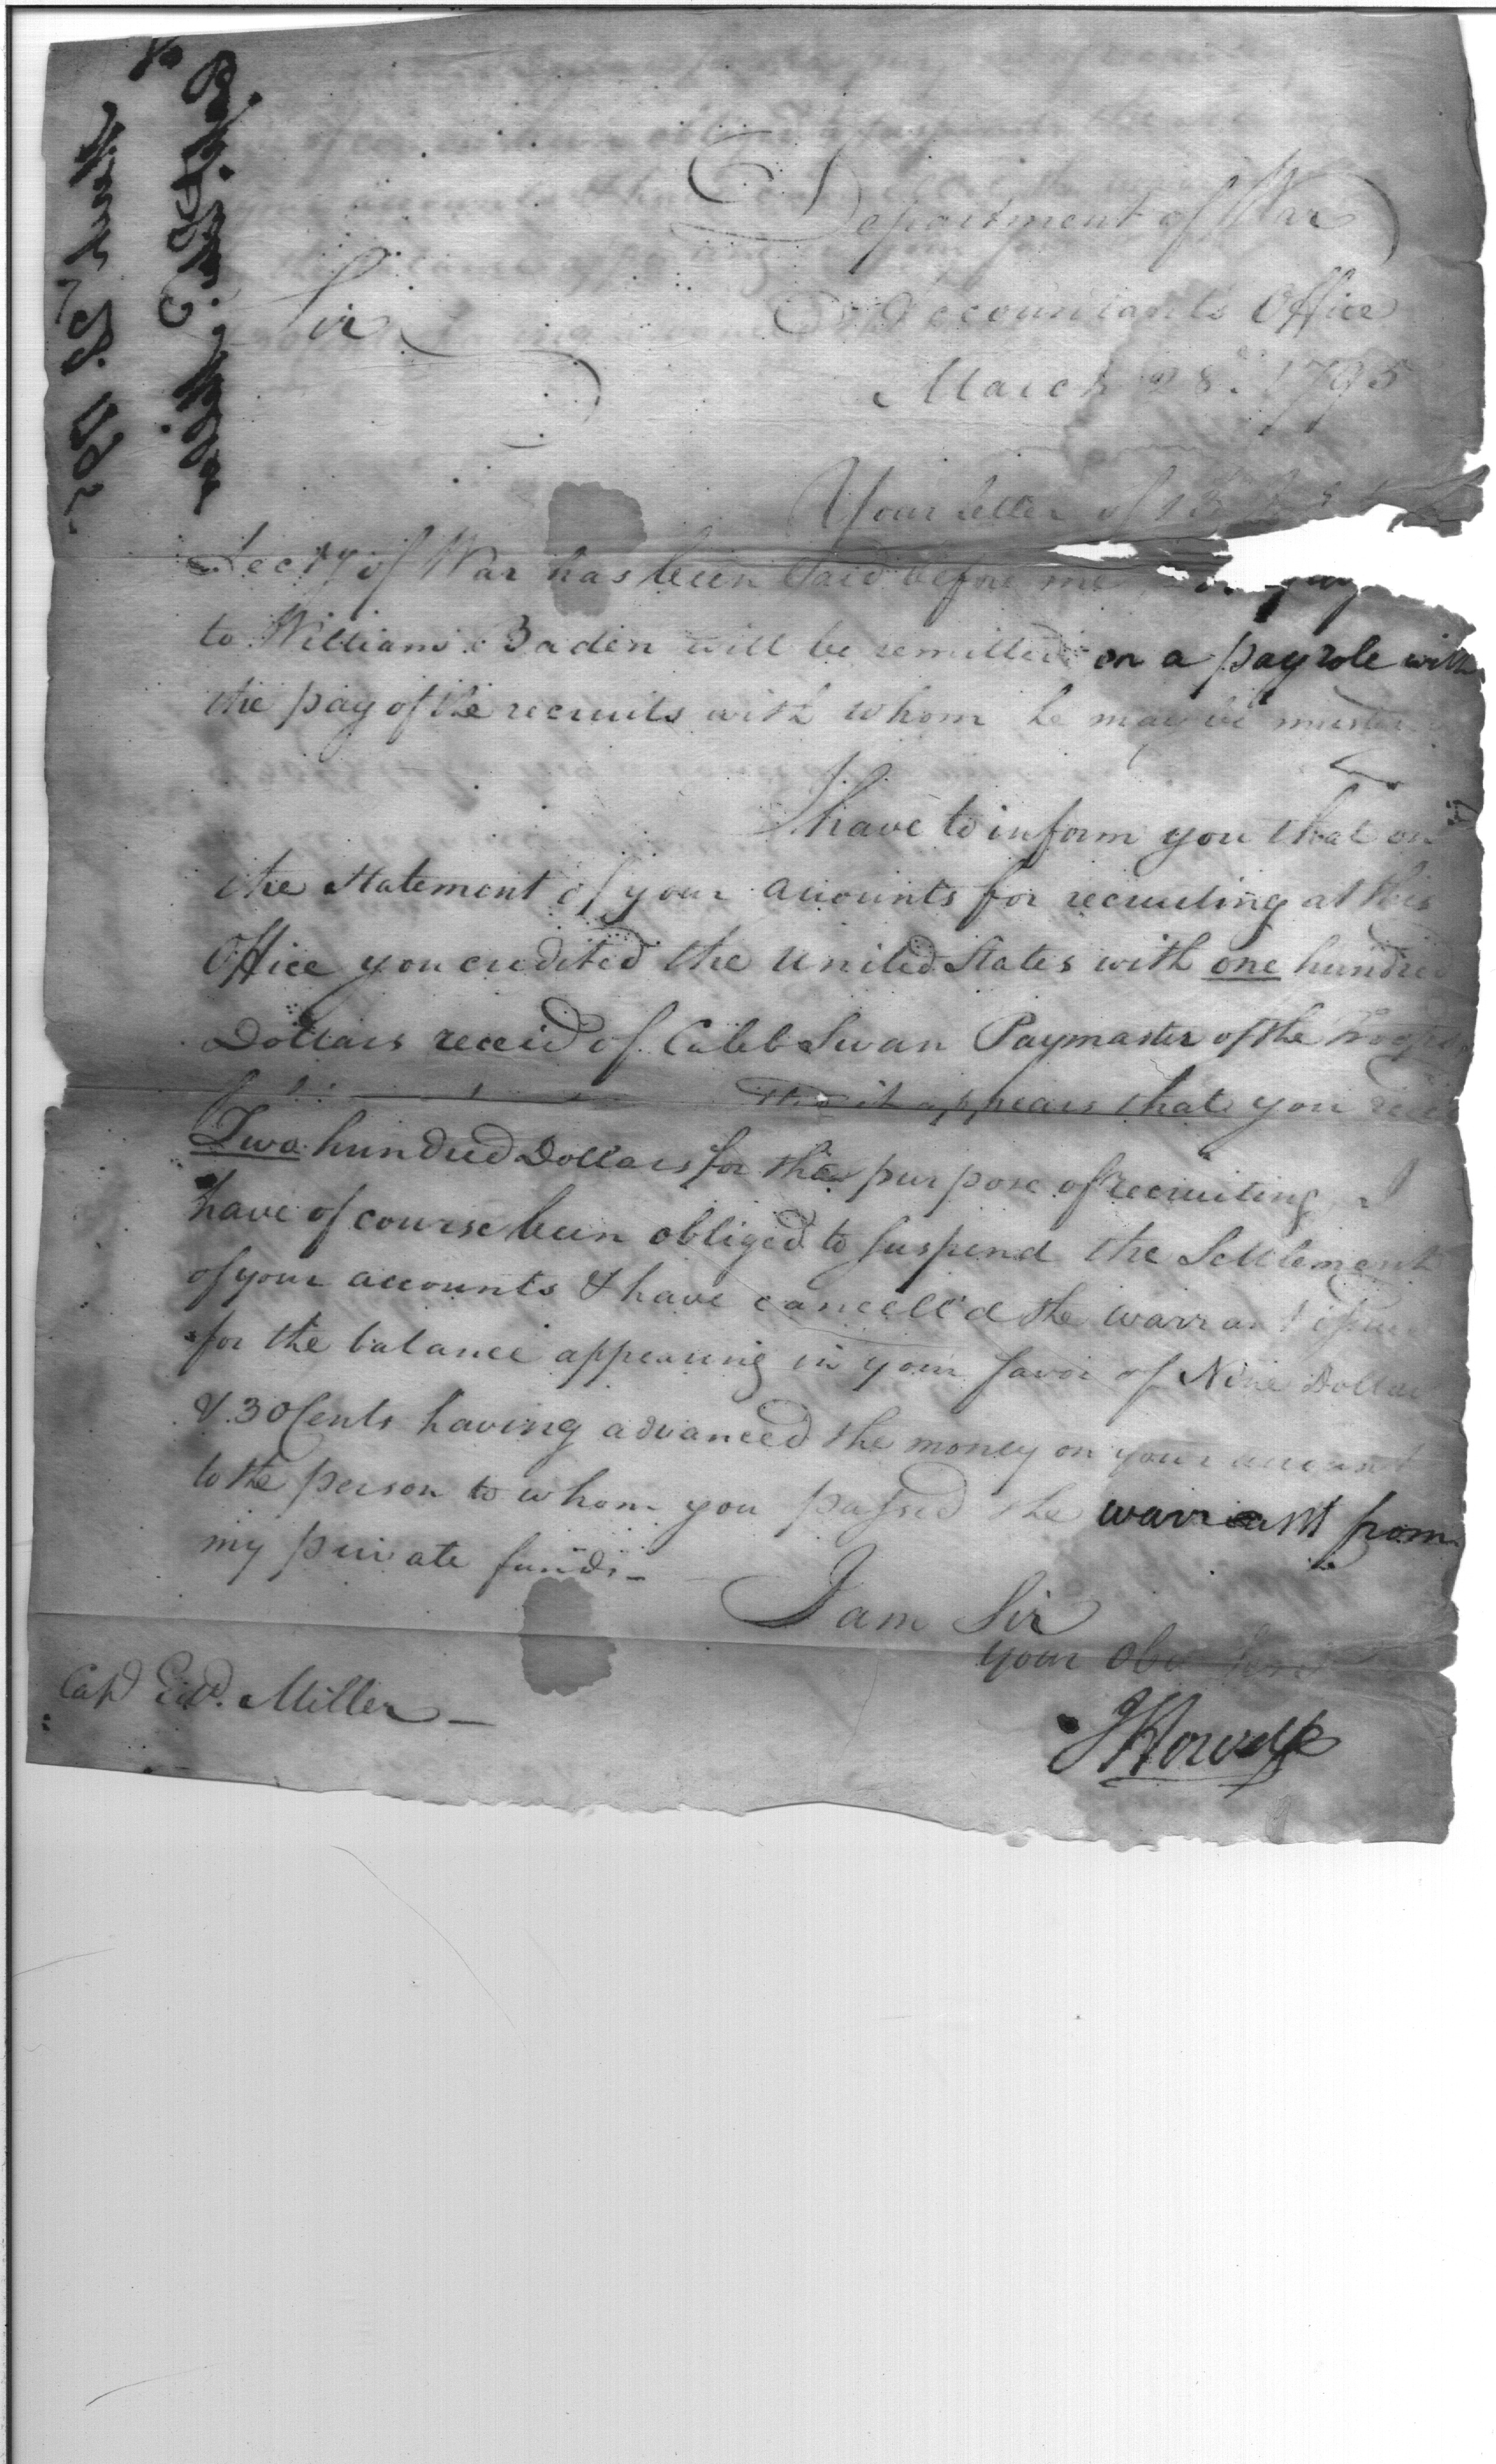 Department of War
Accountants Office
Sir
March 28th 1795
Your letter of 15
Secty of War has been laid before me
to William Baden will be remitted on a payrole with
the pay of the recruits with whom he may be
I have to inform you that on
the statement of your accounts for recruiting at this
Office you credited the United States with one hundred
Dollars receid of Caleb Swan Paymaster of the Troops
it appears that you
Two hundred Dollars for the purpose of recruiting, I
have of course been obliged to suspend the Settlement
of your accounts & have cancell'd the warrant
for the balance appearing in your favor of Nine Dollars
& 30 Cents having advanced the money on your account
to the person to whom you passed the warrant from
my private funds -
I am Sir
your Obt
JHowell
Capt Edd. Miller -